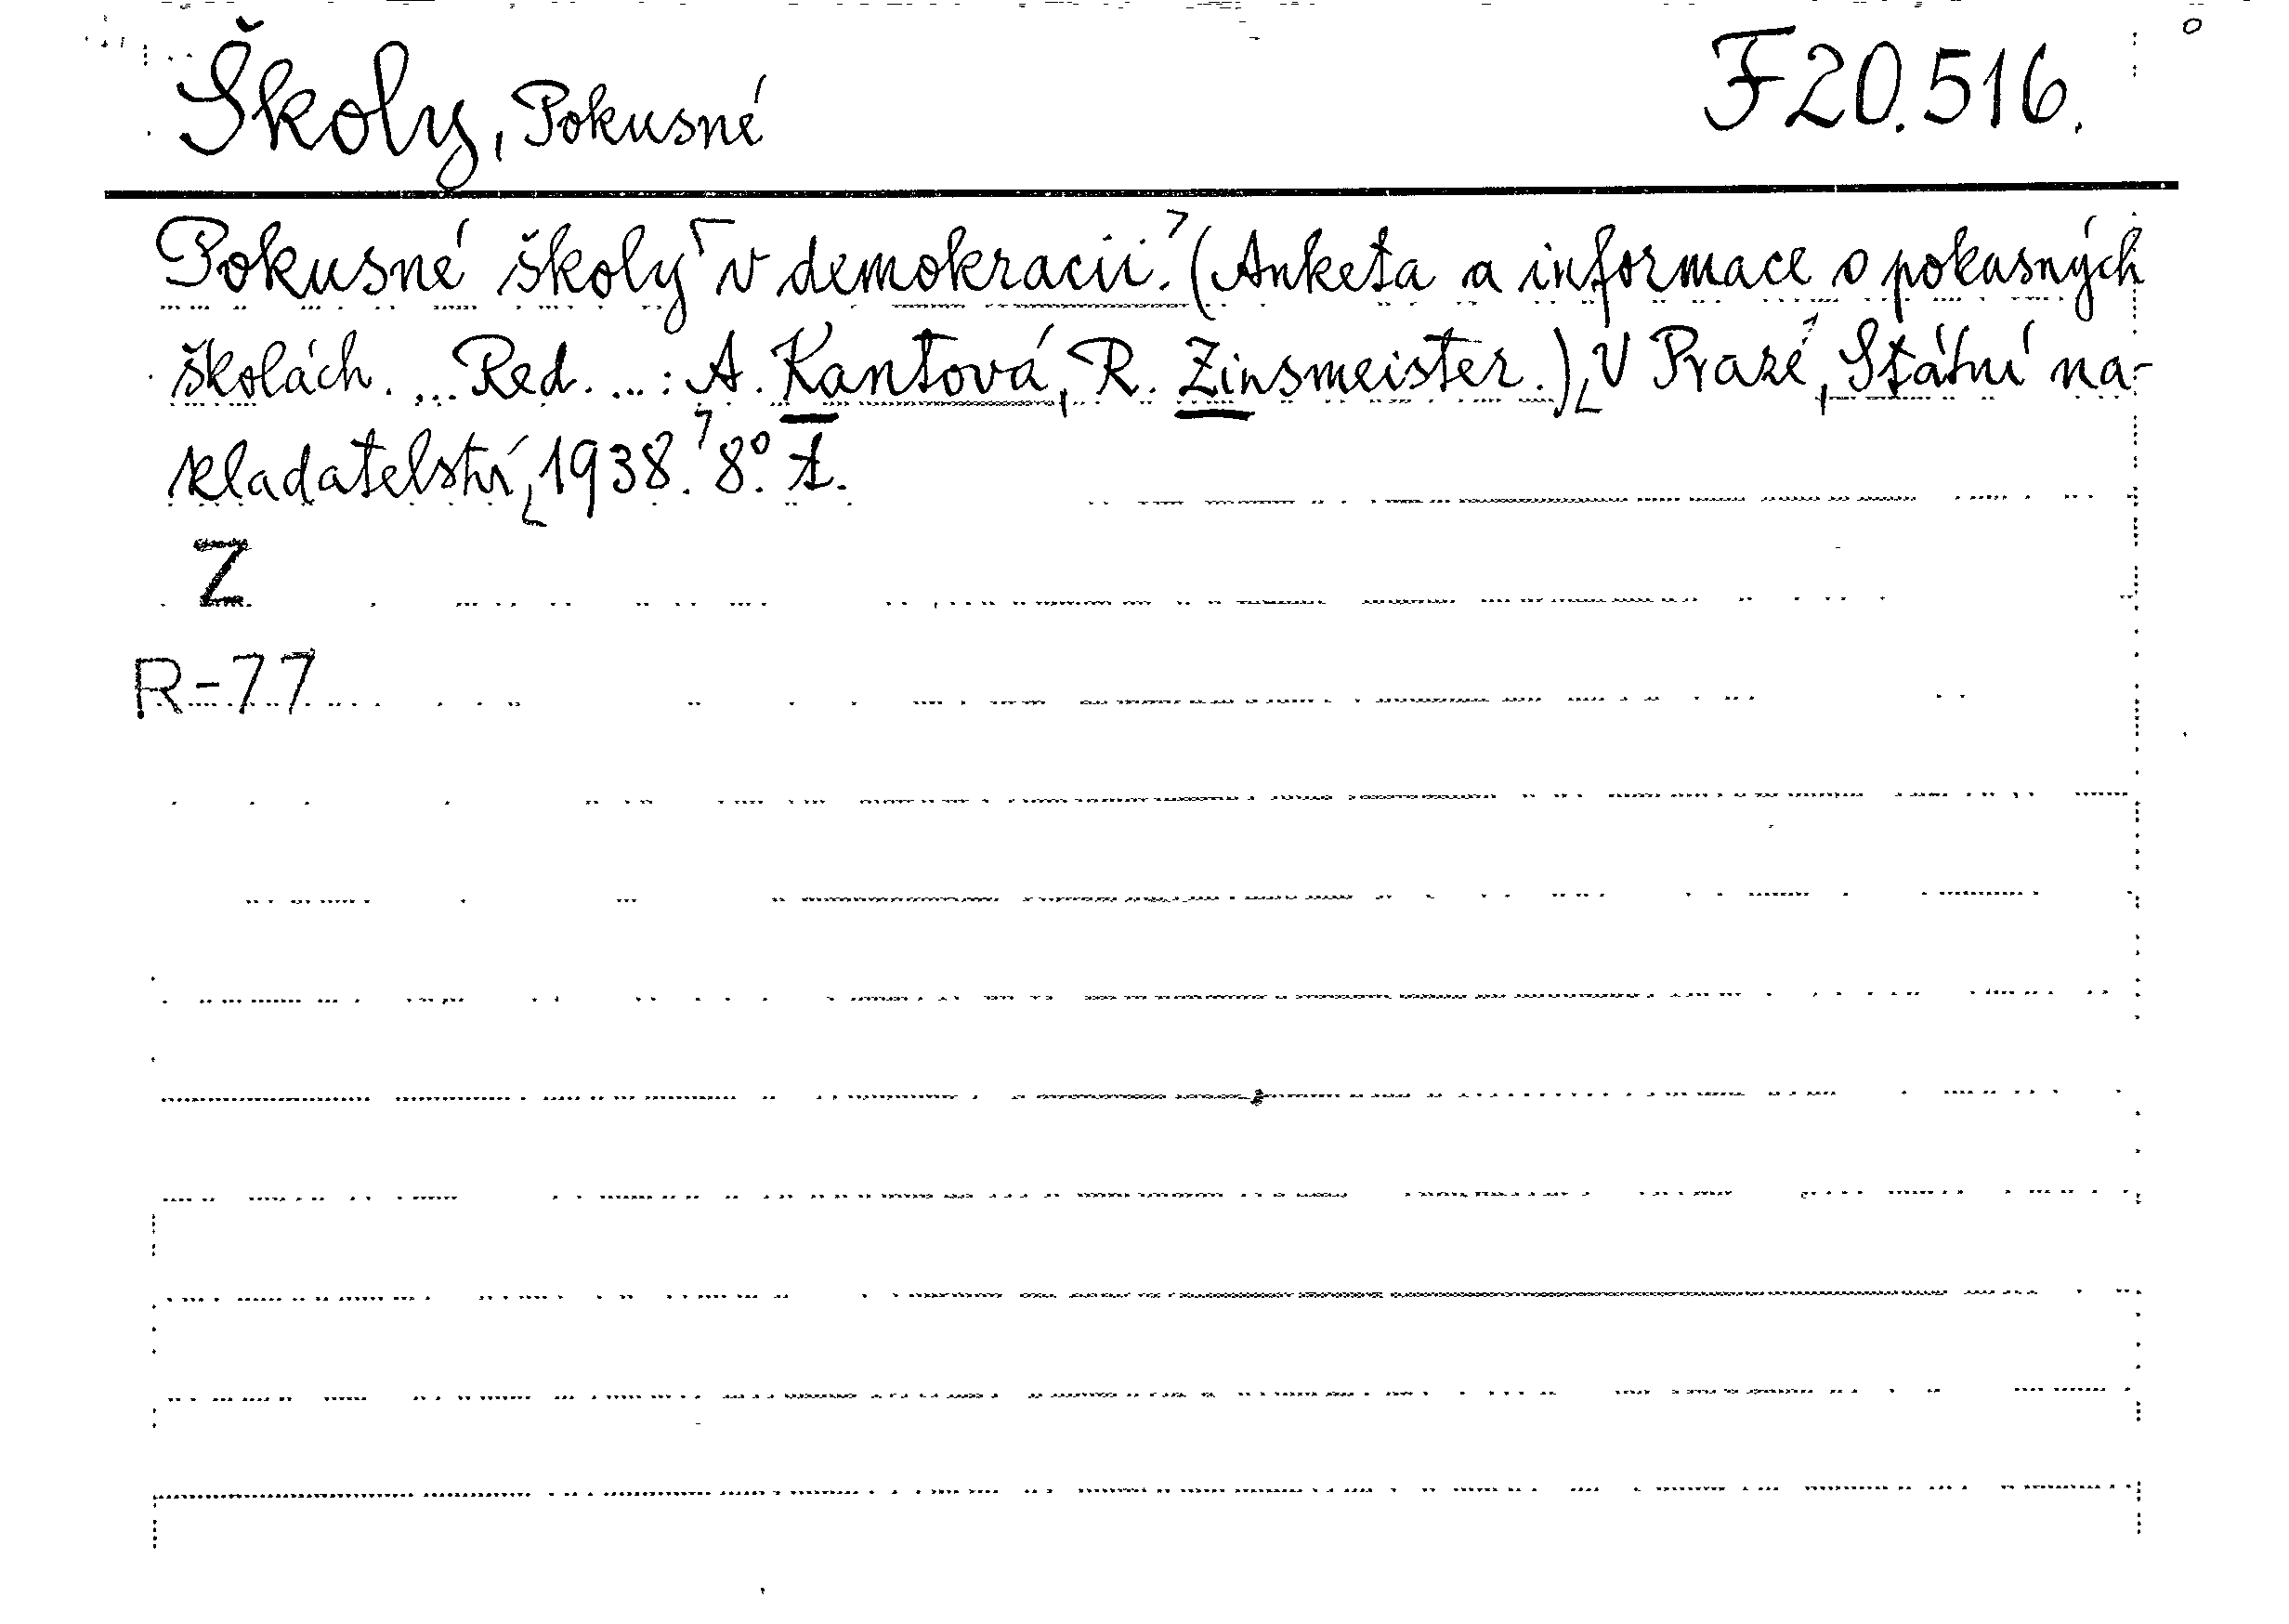 Školy, Pokusné F 20.516.
Pokusné školy v demokracii. (Anketa a informace o pokusných
školách. ... Red. ...: A. Kantová, R. Zinsmeister.) V Praze, Státní na-
kladatelství, 1938. 8°. 1.
Z
R-77